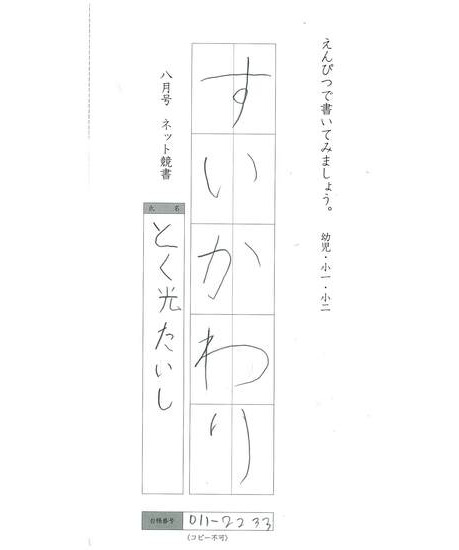 えんぴつで書いてみましょう。
幼児・小一・小二
すいかわり
八月号 ネット競書
氏名
とく光たいし
台帳番号
011-2233
(コピー不可)